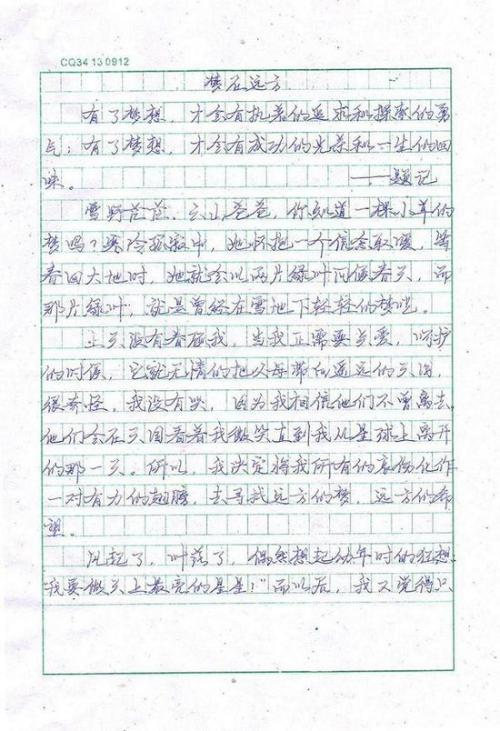 CQ34 13 0912
梦在远方
有了梦想，才会有执着的追求和探索的勇
气；有了梦想，才会有成功的光荣和一生的回
味。 ——题记
雪野茫茫，云山苍苍，你知道一棵小草的
梦吗？寒冷孤寂中，她怀抱一个信念取暖，当
春回大地时，她就会以两片绿叶问候春天，而
那片绿叶，就是曾经在雪地下轻轻的梦呓。
上天没有眷顾我，当我正需要点爱，呵护
的时候，它就无情的把父母带向遥远的天国，
很奇怪，我没有哭，因为我相信他们不曾离去，
他们会在天国看着我微笑直到我从星球上离开
的那一天。所以，我决定将我所有的哀伤化作
一对有力的翅膀，去寻找远方的梦，远方的希
望。
风起了，叶落了，偶然想起幼年时的狂想：
"我要做天上最亮的星星！"而以后，我又觉得只